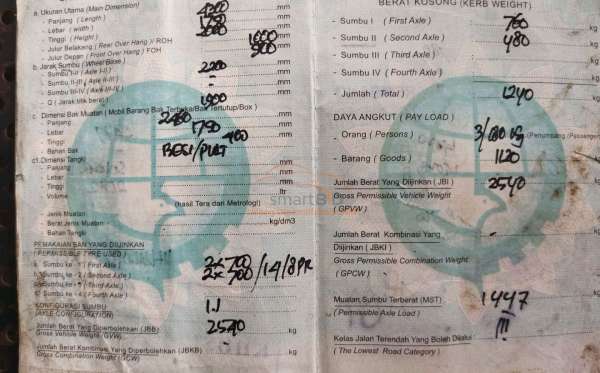 a. Ukuran Utama (Main Dimension)
- Panjang ( Length ) 4200 mm
- Lebar ( width ) mm
- Tinggi ( Height ) mm
- Julur Belakang ( Rear Over Hang )/ ROH 1600 mm
- Julur Depan ( Front Over Hang )/ FOH mm
b. Jarak Sumbu (Wheel Base)
- Sumbu I-II ( Axle I-II ) 2200 mm
- Sumbu II-III ( Axle II-III ) - mm
- Sumbu III-IV ( Axle III-IV ) - mm
- Q ( Jarak titik berat ) mm
c. Dimensi Bak Muatan ( Mobil Barang Bak Terbuka/Bak Tertutup/Box )
- Panjang mm
- Lebar mm
- Tinggi 400 mm
- Bahan Bak BESI/PLAT
c1. Dimensi Tangki
- Panjang mm
- Lebar mm
- Tinggi mm
- Volume ltr
(hasil Tera dari Metrologi)
- Jenis Muatan
- Berat Jenis Muatan kg/dm3
- Bahan Tangki
PEMAKAIAN BAN YANG DIIJINKAN
( PERMISSIBLE TYRE USED )
a. Sumbu ke - 1 ( First Axle )
b. Sumbu ke - 2 ( Second Axle )
c. Sumbu ke - 3 ( Third Axle )
d. Sumbu ke - 4 ( Fourth Axle )
KONFIGURASI SUMBU 1.1
(AXLE CONFIGURATION)
Jumlah Berat Yang Diperbolehkan (JBB) 2540 kg
Gross Vehicle Weight (GVW)
Jumlah Berat Kombinasi Yang Diperbolehkan (JBKB) - kg
Gross Combination Weight (GCW)
BERAT KOSONG (KERB WEIGHT)
- Sumbu I ( First Axle ) 760 kg
- Sumbu II ( Second Axle ) 480 kg
- Sumbu III ( Third Axle ) kg
- Sumbu IV ( Fourth Axle ) kg
- Jumlah ( Total ) 1240 kg
DAYA ANGKUT ( PAY LOAD )
- Orang ( Persons ) (Penumpang /Passenger
- Barang ( Goods ) 1120 kg
Jumlah Berat Yang Diijinkan ( JBI ) 2540 kg
Gross Permissible Vehicle Weight
( GPVW )
Jumlah Berat Kombinasi Yang - kg
Diijinkan ( JBKI )
Gross Permissible Combination Weight
( GPCW )
Muatan Sumbu Terberat (MST) 1447 kg
( Permissible Axle Load )
Kelas Jalan Terendah Yang Boleh Dilalui III
( The Lowest Road Category )